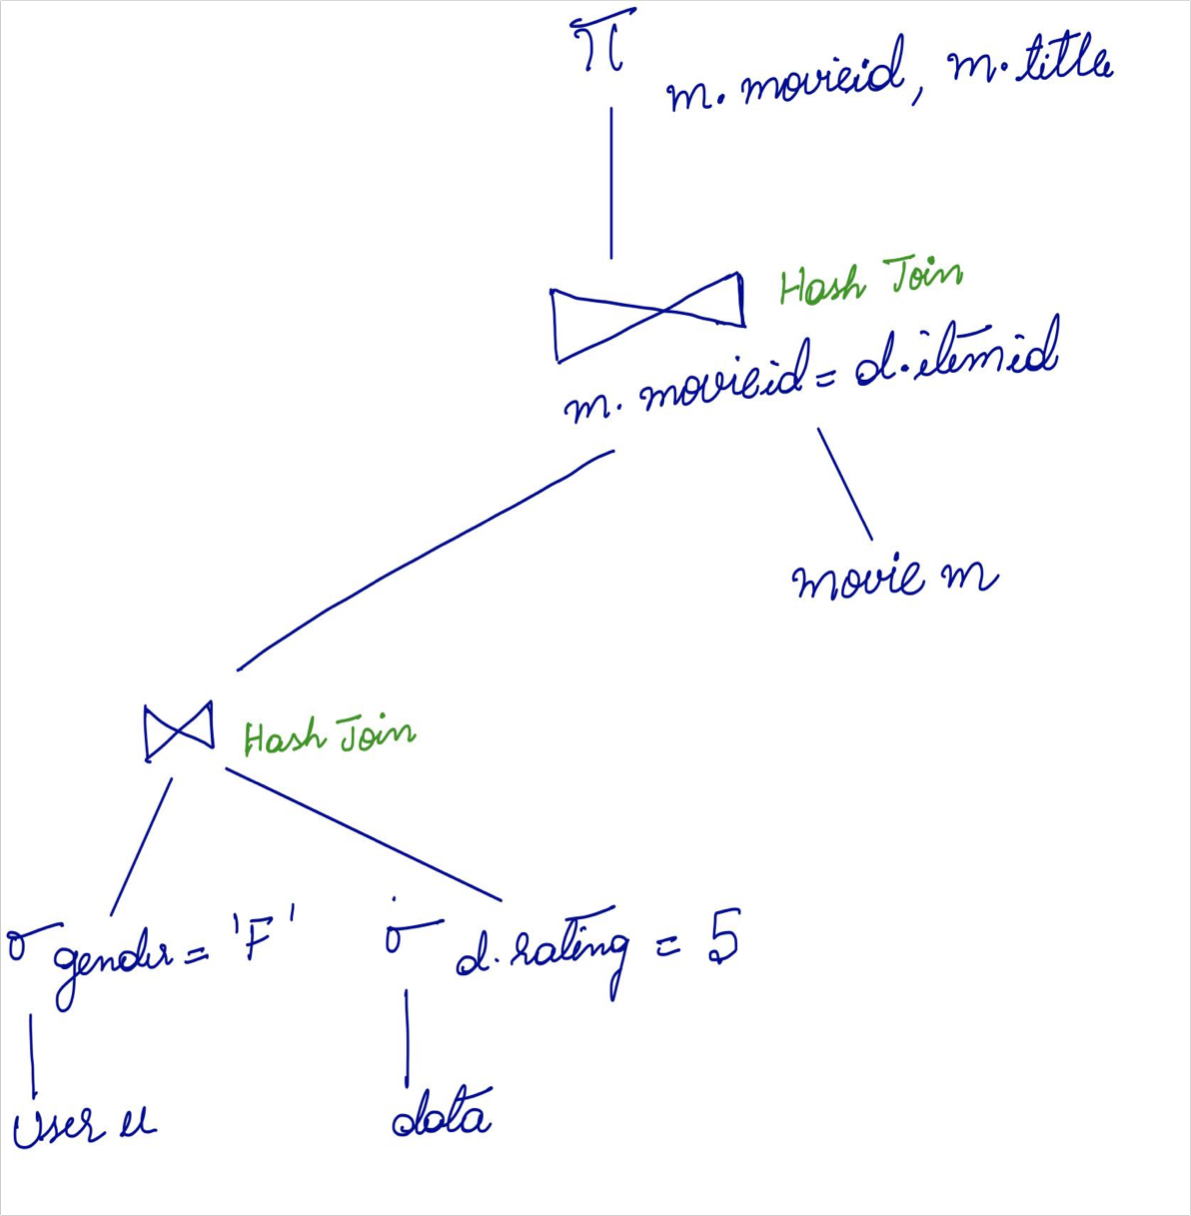 π
m.movieid, m.title
Hash Join
m.movieid = d.itemid
movie m
Hash Join
σ gender = 'F' σ d.rating = 5
User u data